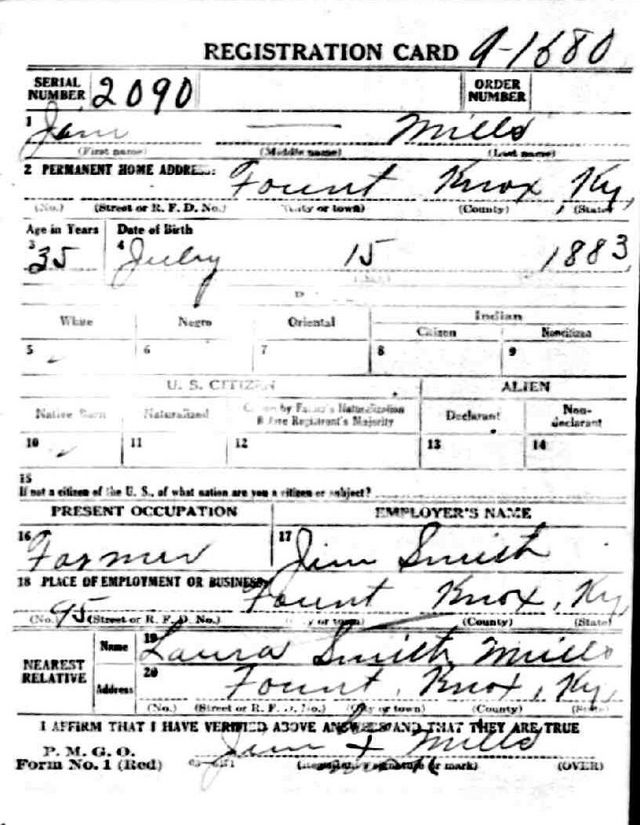 REGISTRATION CARD 9-1680
SERIAL NUMBER 2090 ORDER NUMBER
1 Jim — Mills
(First name) (Middle name) (Last name)
2 PERMANENT HOME ADDRESS: Fount Knox Ky,
(No.) (Street or R. F. D. No.) (City or town) (County) (State)
Age in Years Date of Birth
3 35 4 July 15 1883,
White Negro Oriental Indian
Citizen Noncitizen
5 ✓ 6 7 8 9
U. S. CITIZEN ALIEN
Native Born Naturalized Citizen by Father's Naturalization Before Registrant's Majority Declarant Non-declarant
10 ✓ 11 12 13 14
15
If not a citizen of the U. S., of what nation are you a citizen or subject?
PRESENT OCCUPATION EMPLOYER'S NAME
16 Farmer 17 Jim Smith
18 PLACE OF EMPLOYMENT OR BUSINESS: Fount Knox, Ky,
(No.) 95 (Street or R. F. D. No.) (City or town) (County) (State)
NEAREST RELATIVE Name 19 Laura Smith Mills
Address 20 Fount, Knox, Ky,
(No.) (Street or R. F. D. No.) (City or town) (County) (State)
I AFFIRM THAT I HAVE VERIFIED ABOVE ANSWERS AND THAT THEY ARE TRUE
P. M. G. O.
Form No. 1 (Red) Jim X Mills
(Registrant's signature or mark) (OVER)